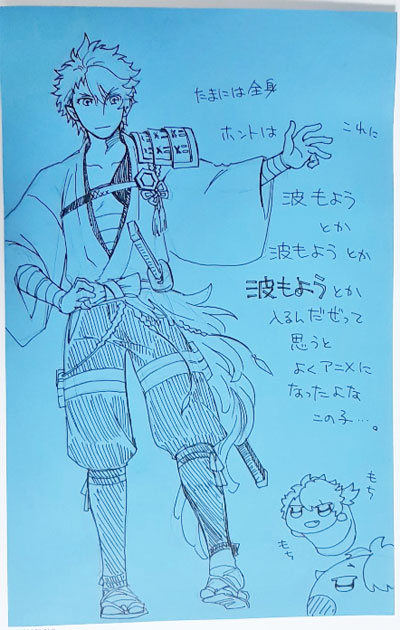 たまには全身
ホントは これに
波もよう
とか
波もようとか
波もようとか
入るんだぜって
思うと
よくアニメに
なったよな
この子…。
もち
もち